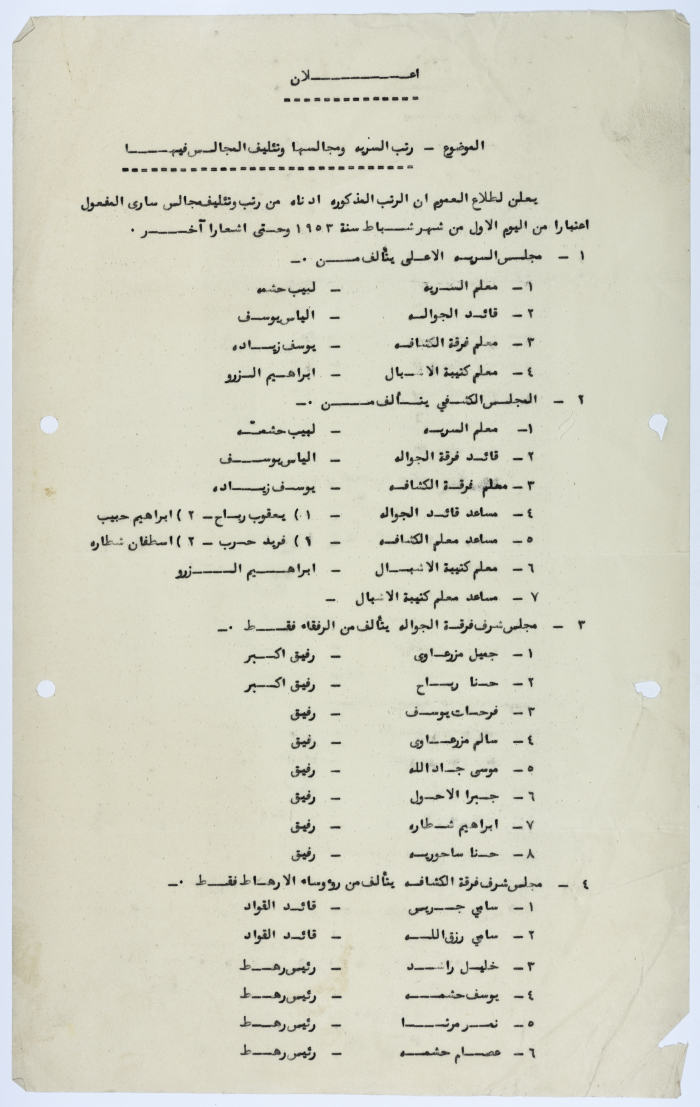 اعـــــــــــلان
الموضوع – رتب السريه ومجالسها وتئليف المجالـس فيهـــــا
يعلن لطلاع العموم ان الرتب المذكوره ادناه من رتب وتئليف مجالس سارى المفعول
اعتبارا من اليوم الاول من شهر شباط سنة ١٩٥٣ وحتى اشعارا آخـــر .
١ – مجلـس السريـه الاعـلى يتألف مـــن .–
١– معلم السـرية – لبيب حشمه
٢– قائـد الجوالـه – الياس يوسـف
٣– معلم فرقة الكشافـه – يوسف زيــاده
٤– معلم كتيبة الاشـبال – ابراهـيم الـزرو
٢ – المجلـس الكشـفي يتـألف مـــن .–
١– معلم السريـه – لبيب حشمـّه
٢– قائـد فرقة الجواله – الياس يوســف
٣– معلم فرقـة الكشافـه – يوسـف زيـاده
٤– مساعد قائـد الجواله – ١) يعقوب ربـاح – ٢) ابراهيم حبيب
٥– مساعد معلم الكشافـه – ١) فريد حـرب – ٢) اسطفان شطاره
٦– معلم كتيبة الاشبـال – ابراهــيم الـــزرو
٧– مساعد معلم كتيبة الاشبال –
٣ – مجلس شرف فرقـة الجواله يتألف من الرفقاء فقــط .–
١– جميل مزرعـاوى – رفيق اكـبر
٢– حـنا ربــاح – رفيق اكـبر
٣– فرحـات يوسـف – رفيق
٤– سالم مزرعـاوى – رفيق
٥– موسى جـاد الله – رفيق
٦– جـبرا الاحـول – رفيق
٧– ابراهيم شـطاره – رفيق
٨– حـنا ساحوريـه – رفيق
٤ – مجلس شرف فرقة الكشافـه يتألف من رؤوساء الارهـاط فقــط .–
١– سامي جــريس – قائـد القواد
٢– سامي رزق اللـه – قائـد القواد
٣– خليـل راشــد – رئيس رهــط
٤– يوسـف حشمـه – رئيس رهــط
٥– نمــر مرتــا – رئيس رهــط
٦– عصـام حشمـه – رئيس رهــط